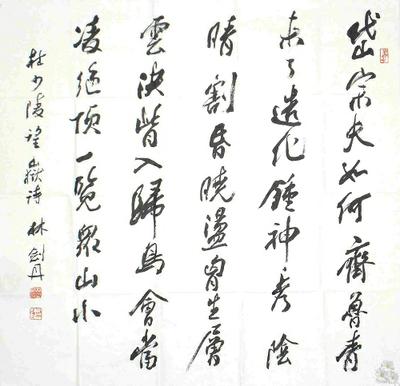 岱宗夫如何齊魯青
未了造化鍾神秀陰
晴割昏曉盪胷生層
雲決眥入歸鳥會當
凌絕頂一覽眾山小
杜少陵望嶽詩 林劍丹